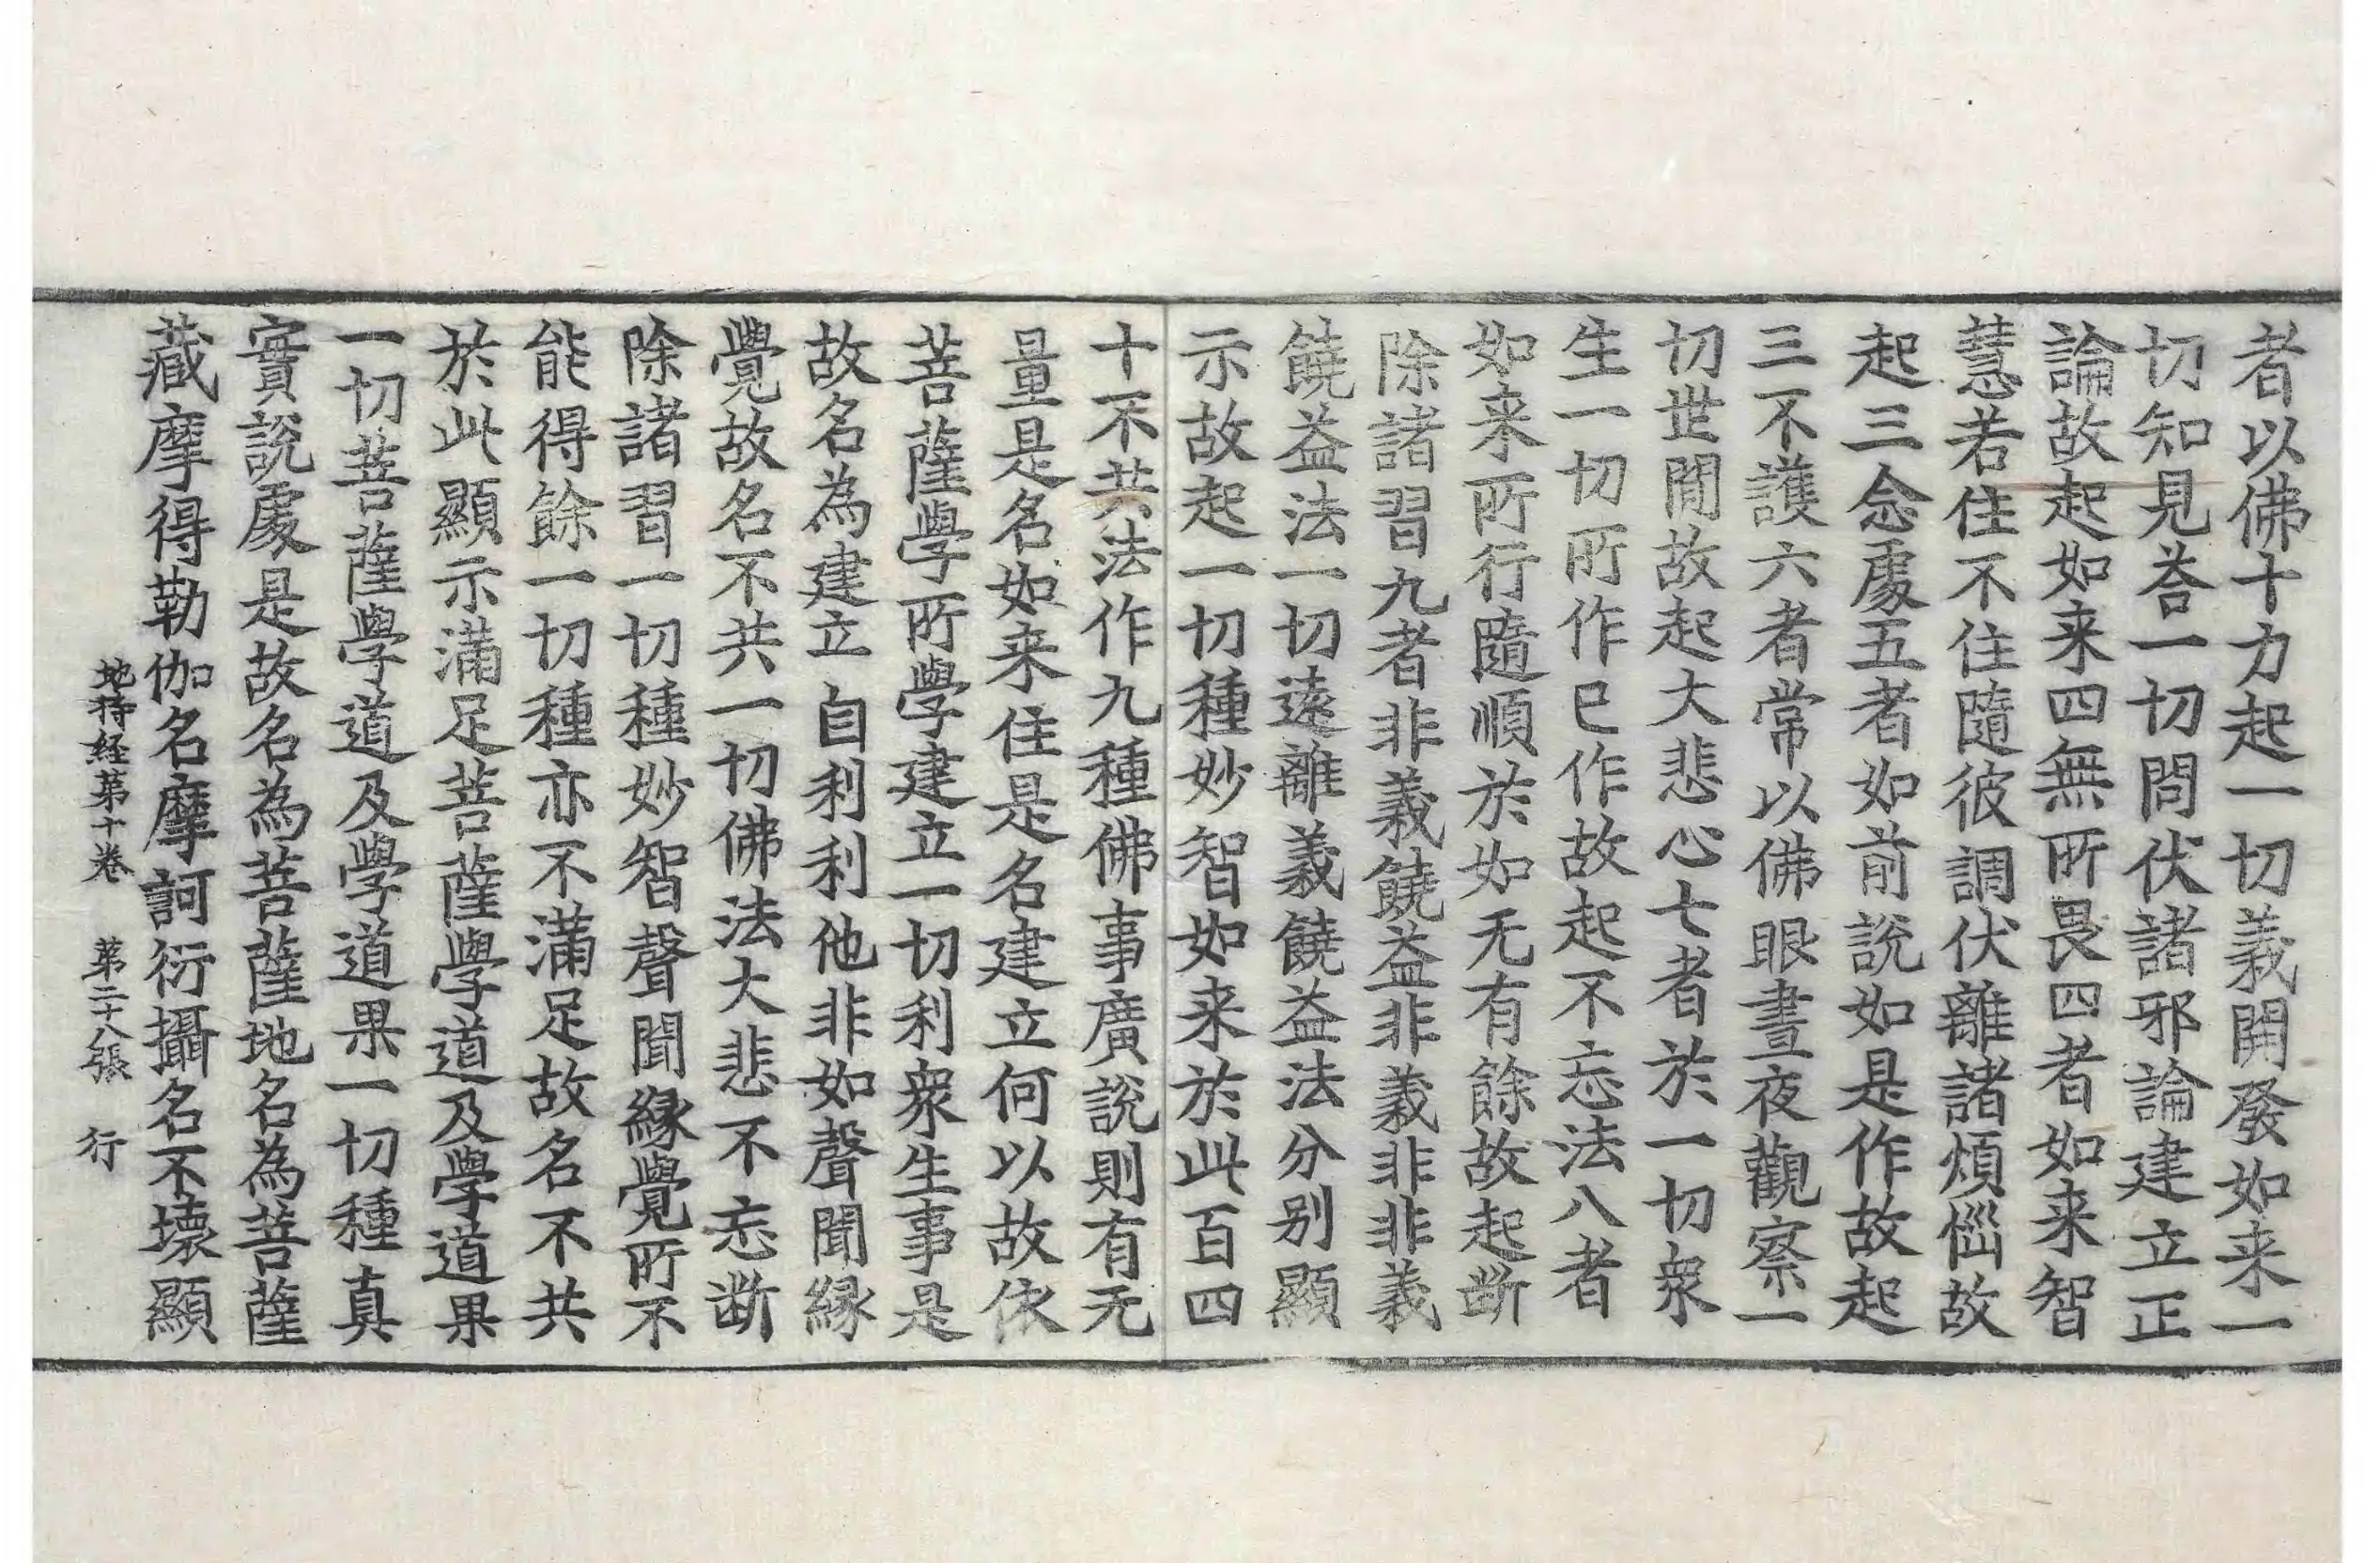 者以佛十力起一切義開發如来一
切知見荅一切問伏諸邪論建立正
論故起如来四無所畏四者如来智
慧若住不住隨彼調伏離諸煩惱故
起三念處五者如前說如是作故起
三不護六者常以佛眼晝夜觀察一
切世間故起大悲心七者於一切衆
生一切所作已作故起不忘法八者
如来所行隨順於如无有餘故起斷
除諸習九者非義饒益非義非非義
饒益法一切遠離義饒益法分别顯
示故起一切種妙智如来於此百四
十不共法作九種佛事廣說則有无
量是名如来住是名建立何以故依
菩薩學所學建立一切利衆生事是
故名為建立自利利他非如聲聞緣
覺故名不共一切佛法大悲不忘斷
除諸習一切種妙智聲聞緣覺所不
能得餘一切種亦不滿足故名不共
於此顯示滿足菩薩學道及學道果
一切菩薩學道及學道果一切種真
實說處是故名為菩薩地名為菩薩
藏摩得勒伽名摩訶衍攝名不壞顯
地持經第十卷　第二十八張　行